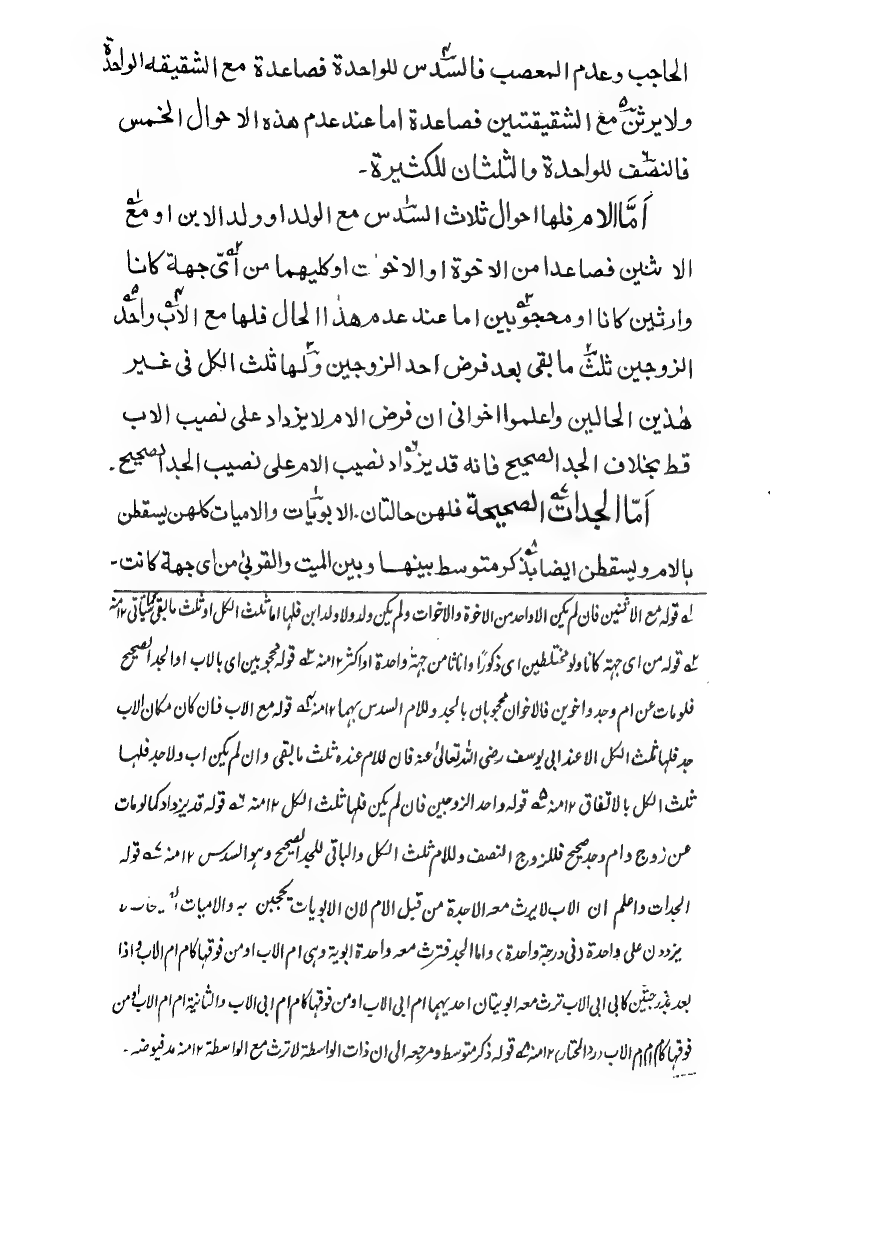 الحاجب وعدم المعصب فالسدس للواحدة فصاعدة مع الشقيقه الواحدة
ولا يرثن مع الشقيقتين فصاعدة اما عند عدم هذه الاحوال الخمس
فالنصف للواحدة والثلثان للكثيرة۔
اَمَّا الام فلها احوال ثلاث السدس مع الولد او ولد الابن او مع
الاثنين فصاعدا من الاخوة او الاخوات او كليهما من أيّ جهة كانا
وارثين كانا او محجوبين اما عند عدم هذا الحال فلها مع الاب واحد
الزوجين ثلث ما بقى بعد فرض احد الزوجين ولها ثلث الكل فى غير
هٰذين الحالين واعلموا اخوانى ان فرض الام لا يزداد على نصيب الاب
قط بخلاف الجد الصحيح فانه قد يزداد نصيب الام على نصيب الجد الصحيح۔
اَمّا الجدات الصحيحة فلهن حالتان۔ الابويات والاميات كلهن يسقطن
بالام ويسقطن ايضا بذكر متوسط بينها وبين الميت والقربىٰ من اى جهة كانت۔
۱ـه قوله مع الاثنين فان لم يكن الا واحد من الاخوة والاخوات ولم يكن ولد ولا ولد ابن فلها اما ثلث الكل او ثلث ما بقى كما سيأتى ۱۲ منه
۲ـه قوله من اى جهة كانا ولو مختلطين اى ذكورًا واناثا من جهة واحدة او اكثر ۱۲ منه ۳ـه قوله محجوبين اى بالاب او الجد الصحيح
فلو مات عن ام وجد واخوين فالاخوان محجوبان بالجد وللام السدس بهما ۱۲ منه ۴ـه قوله مع الاب فان كان مكان الاب
جد فلها ثلث الكل الا عند ابى يوسف رضى الله تعالىٰ عنه فان للام عنده ثلث ما بقى وان لم يكن اب ولا جد فلها
ثلث الكل بالاتفاق ۱۲ منه ۵ـه قوله واحد الزوجين فان لم يكن فلها ثلث الكل ۱۲ منه ۶ـه قوله قد يزداد كما لو مات
عن زوج وام وجد صحيح فللزوج النصف وللام ثلث الكل والباقى للجد الصحيح وهو السدس ۱۲ منه ۷ـه قوله
الجدات واعلم ان الاب لا يرث معه الا جدة من قبل الام لان الابويات يحجبن به والاميات لا
يزددن على واحدة (فى درجة واحدة) واما الجد فترث معه واحدة ابوية وهى ام الاب او من فوقها كام ام الاب و اذا
بعد بدرجتين كابى ابى الاب ترث معه ابويتان احديهما ام ابى الاب او من فوقها كام ام ابى الاب والثانية ام ام الاب او من
فوقها كام ام ام الاب (رد المحتار) ۱۲ منه ۸ـه قوله ذكر متوسط ومرجعه الى ان ذات الواسطة لا ترث مع الواسطة ۱۲ منه مد فيوضه۔